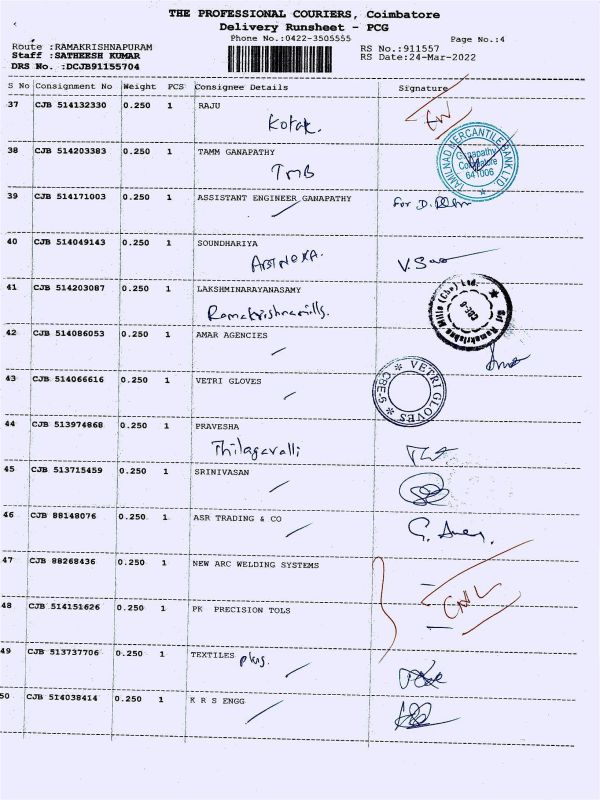 THE PROFESSIONAL COURIERS, Coimbatore
Delivery Runsheet - PCG
Phone No.:0422-3505555 Page No.:4
Route :RAMAKRISHNAPURAM RS No.:911557
Staff :SATHEESH KUMAR RS Date:24-Mar-2022
DRS No. :DCJB91155704
S No Consignment No Weight PCS Consignee Details Signature
37 CJB 514132330 0.250 1 RAJU
Kotak.
38 CJB 514203383 0.250 1 TAMM GANAPATHY
TMB
TAMIL NAD MERCANTILE BANK LTD
Ganapathy
Coimbatore
641006
39 CJB 514171003 0.250 1 ASSISTANT ENGINEER GANAPATHY
for D.
40 CJB 514049143 0.250 1 SOUNDHARIYA
V.
41 CJB 514203087 0.250 1 LAKSHMINARAYANASAMY
Ramakrishnamills.
Sri Ramakrishna Mills (Cbe) Ltd.
CBE-6
42 CJB 514086053 0.250 1 AMAR AGENCIES
43 CJB 514066616 0.250 1 VETRI GLOVES
VETRI GLOVES
CBE-5
44 CJB 513974868 0.250 1 PRAVESHA
Thilagavalli
45 CJB 513715459 0.250 1 SRINIVASAN
46 CJB 88148076 0.250 1 ASR TRADING & CO
47 CJB 88268436 0.250 1 NEW ARC WELDING SYSTEMS
48 CJB 514151626 0.250 1 PK PRECISION TOLS
49 CJB 513737706 0.250 1 TEXTILES
50 CJB 514038414 0.250 1 K R S ENGG